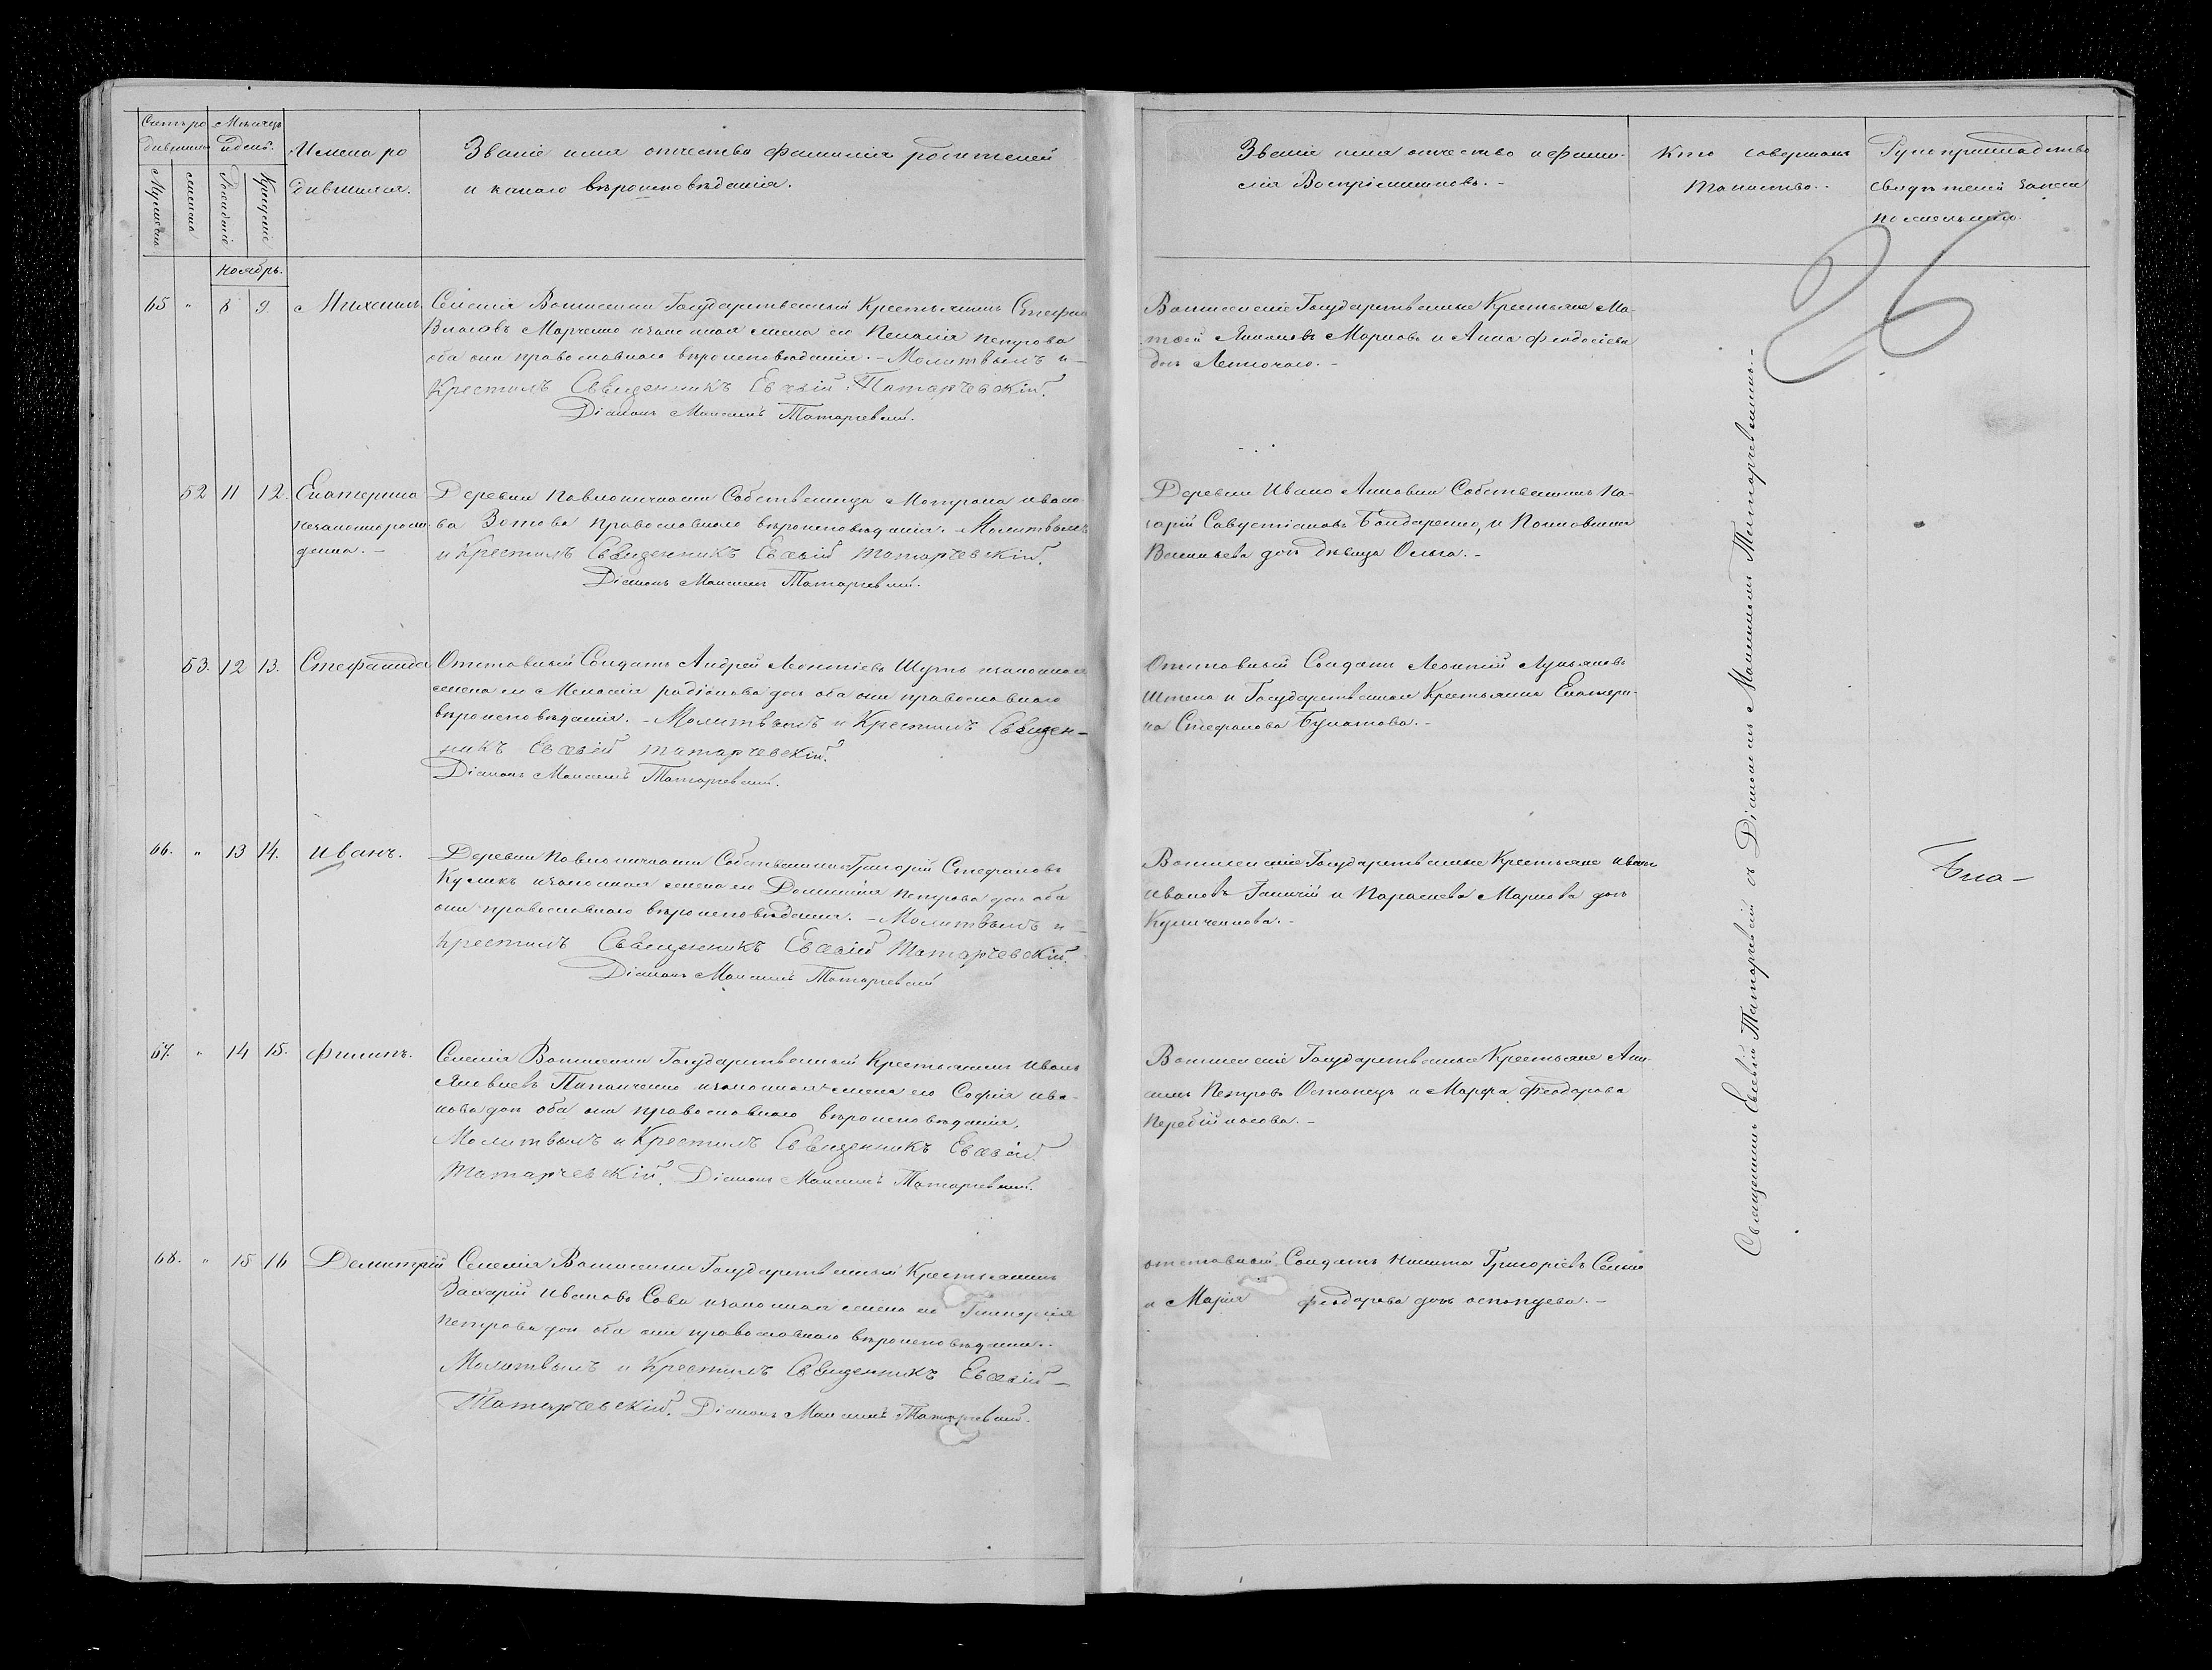 Счетъ ро
дившихся
Мѣсяцъ
и день.
Мужеска
женска
Рожденіе
Крещеніе
Имена ро
дившихся.
Званіе имя отчество фамилія родителей
и какого вѣроисповѣданія.
Званіе имя отчество и фами-
лія Воспріемниковъ. -
Кто совершалъ
таинство. -
Рукоприкладство
свидѣтелей записи
по желанію.
26
ноябрь.
65 " 8 9. Михаилъ.
Селенія Государственный Крестьянинъ Стефан
Власовъ Марченко и законная жена его Пелагія Петрова
оба они православнаго вѣроисповѣданія. - Молитвылъ и -
Крестилъ Священникъ Евсевій Татарчевскій.
Діаконъ Максимъ Татарчевскій.
Государственные Крестьяне Ма-
твей Марковъ и Анна Феодосіева
дочь
52 11 12. Екатерина
незаконнорож-
денна. -
Деревни Собственница Матрона Ивано-
ва Зотова православнаго вѣроисповѣданія. - Молитвылъ
и Крестилъ Священникъ Евсевій Татарчевскій.
Діаконъ Максимъ Татарчевскій.
Деревни Ивано Анновки Собственникъ Ма-
карій Савустіановъ Бондаренко, и Полковника
Васильева дочь дѣвица Ольга. -
53. 12 13. Стефанида
Отставный Солдатъ Андрей Леонтіевъ Шуть и законная
жена его Меланія Радіонова дочь оба они православнаго
вѣроисповѣданія. - Молитвылъ и Крестилъ Священ-
никъ Евсевій Татарчевскій.
Діаконъ Максимъ Татарчевскій.
Отставный Солдатъ Леонтій Лукьяновъ
и Государственная Крестьянка Екатери-
на Стефанова Булатова. -
66. " 13 14. Иванъ.
Деревни Собственникъ Григорій Стефановъ
Куликъ и законная жена его Домникія Петрова дочь оба
они православнаго вѣроисповѣданія. - Молитвылъ и -
Крестилъ Священникъ Евсевій Татарчевскій.
Діаконъ Максимъ Татарчевскій
Государственные Крестьяне Иванъ
Ивановъ и Параскева Маркова дочь
Куличенкова. -
67. " 14 15. Филипъ.
Селенія Государственный Крестьянинъ Иванъ
Яковлевъ Пилипченко и законная жена его Софія Ива-
нова дочь оба они православнаго вѣроисповѣданія,
Молитвылъ и Крестилъ Священникъ Евсевій
Татарчевскій. Діаконъ Максимъ Татарчевскій.
Государственные Крестьяне
Петровъ Остапецъ и Марфа Феодорова
Перебійносова. -
68. " 15 16 Демитрій
Селенія Государственный Крестьянинъ
Захарій Ивановъ Сова и законная жена его Гликерія
Петрова дочь оба они православнаго вѣроисповѣданія.
Молитвылъ и Крестилъ Священникъ Евсевій -
Татарчевскій. Діаконъ Максимъ Татарчевскій.
отставный Солдатъ Никита Григоріевъ
и Марія Феодорова дочь
Священникъ Евсевій Татарчевскій съ Діакономъ Максимомъ Татарчевскимъ. -